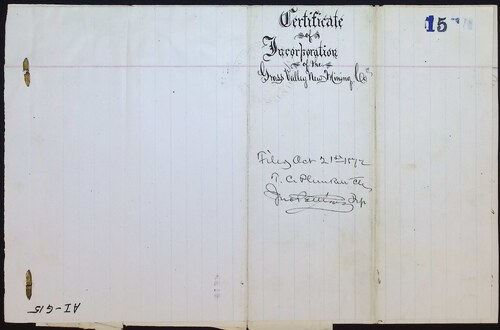 Certificate
of
Incorporation
of the
Grass Valley New Mining Co.
15
Filed Oct 21st 1872
T. C. Plunkett Clk
Dep
AI-G-15